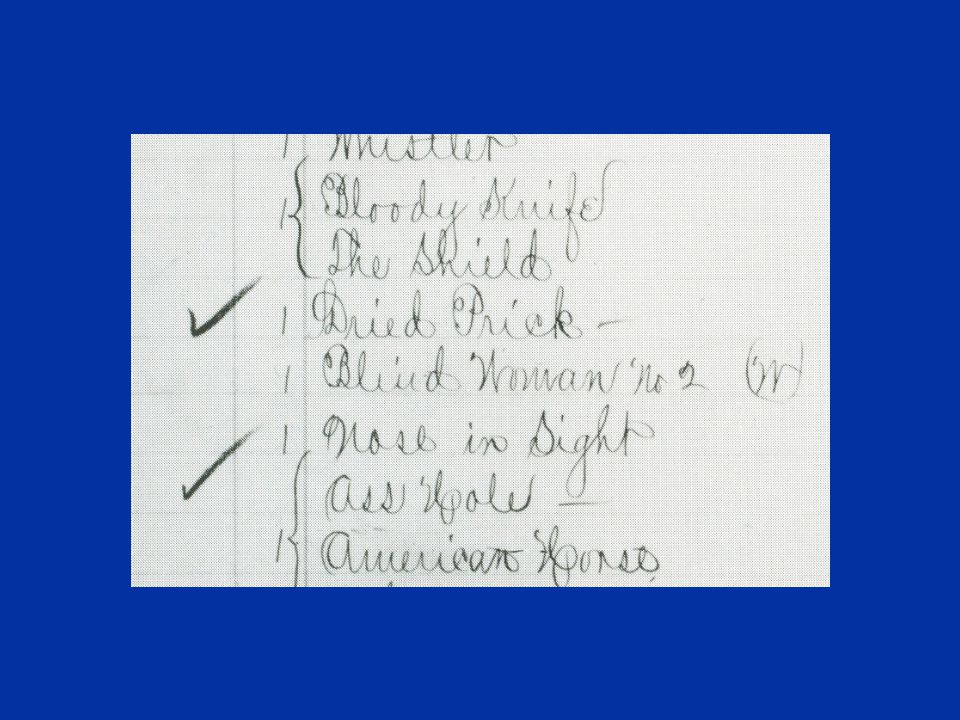 1 Whistler
1 { Bloody Knife
The Shield
✓ 1 Dried Prick —
1 Blind Woman No 2 (W)
1 Nose in Sight
✓ Ass Hole —
1 { American Horse